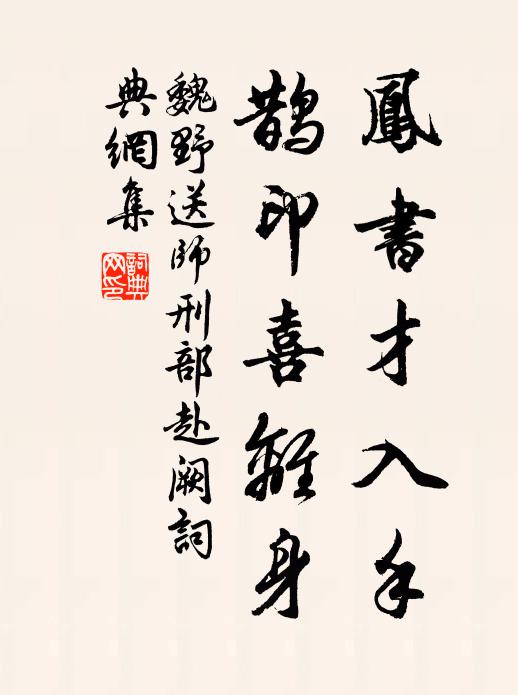 鳳書才入手
鵲印喜離身
魏野送師刑部赴闕詞
典網集
詞典網印